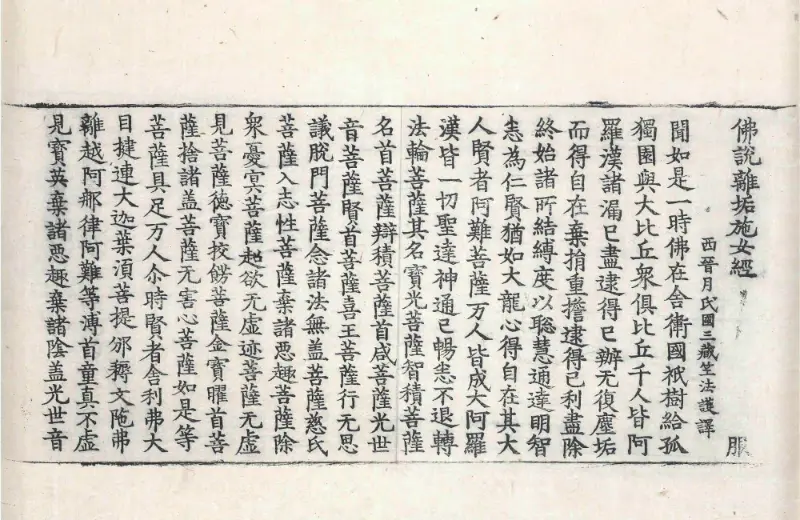 佛說離垢施女經 服
西晉月氏國三藏竺法護譯
聞如是一時佛在舍衛國祇樹給孤
獨園與大比丘衆俱比丘千人皆阿
羅漢諸漏已盡逮得已辦无復塵垢
而得自在棄捐重擔逮得己利盡除
終始諸所結縛度以聦慧通達明智
悉為仁賢猶如大龍心得自在其大
人賢者阿難菩薩万人皆成大阿羅
漢皆一切聖達神通已暢悉不退轉
法輪菩薩其名寶光菩薩智積菩薩
名首菩薩辯積菩薩首咸菩薩光世
音菩薩賢首菩薩喜王菩薩行无思
議脫門菩薩念諸法無盖菩薩慈氏
菩薩入志性菩薩棄諸悪趣菩薩除
衆憂㝠菩薩超欲无虛迹菩薩无虛
見菩薩德寶挍餝菩薩金寶曜首菩
薩捨諸盖菩薩无害心菩薩如是等
菩薩具足万人尒時賢者舍利弗大
目揵連大迦葉湏菩提邠耨文陁弗
離越阿那律阿難等溥首童真不虛
見寶英棄諸悪趣棄諸陰盖光世音